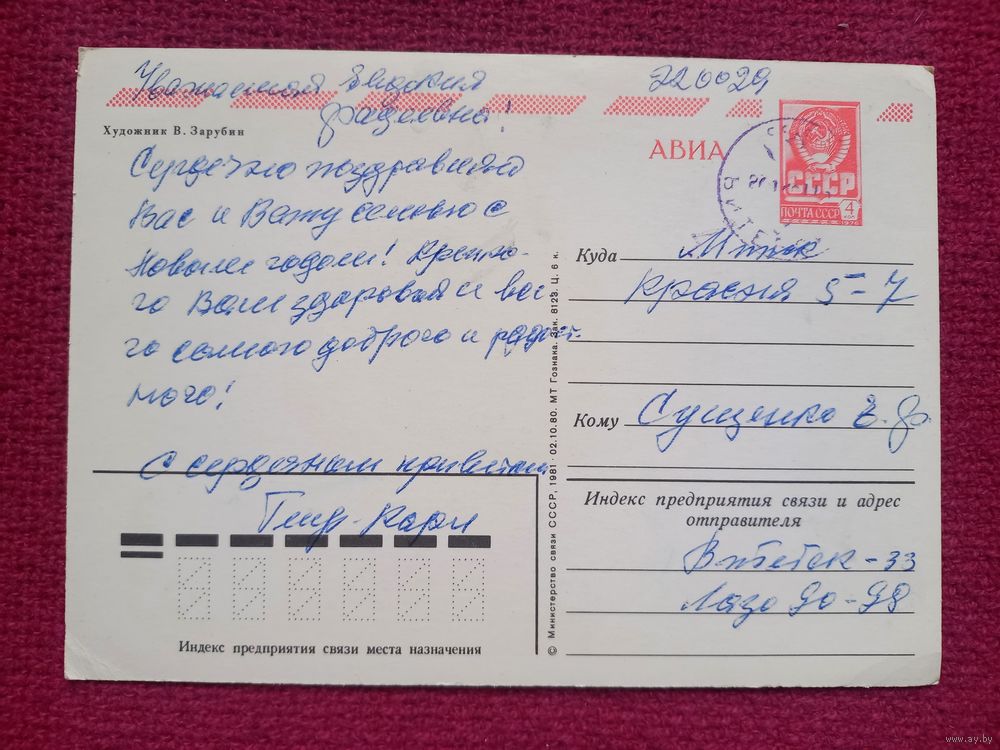 Уважаемая Евдокия
Фадеевна!
220029
Художник В. Зарубин
АВИА
СССР
ПОЧТА СССР
4
КОП
1976
Сердечно поздравляю
Вас и Вашу семью с
Новым годом! Крепко-
го Вам здоровья и все
го самого доброго и радост-
ного!
С сердечным приветом
Куда Минск
Красная 5-7
Кому Сущенко Е. Ф.
Индекс предприятия связи и адрес
отправителя
Витебск-33
Лазо 90-98
Индекс предприятия связи места назначения
© Министерство связи СССР, 1981 · 02.10.80. МТ Гознака. Зак. 8123. Ц. 6 к.
www.ay.by